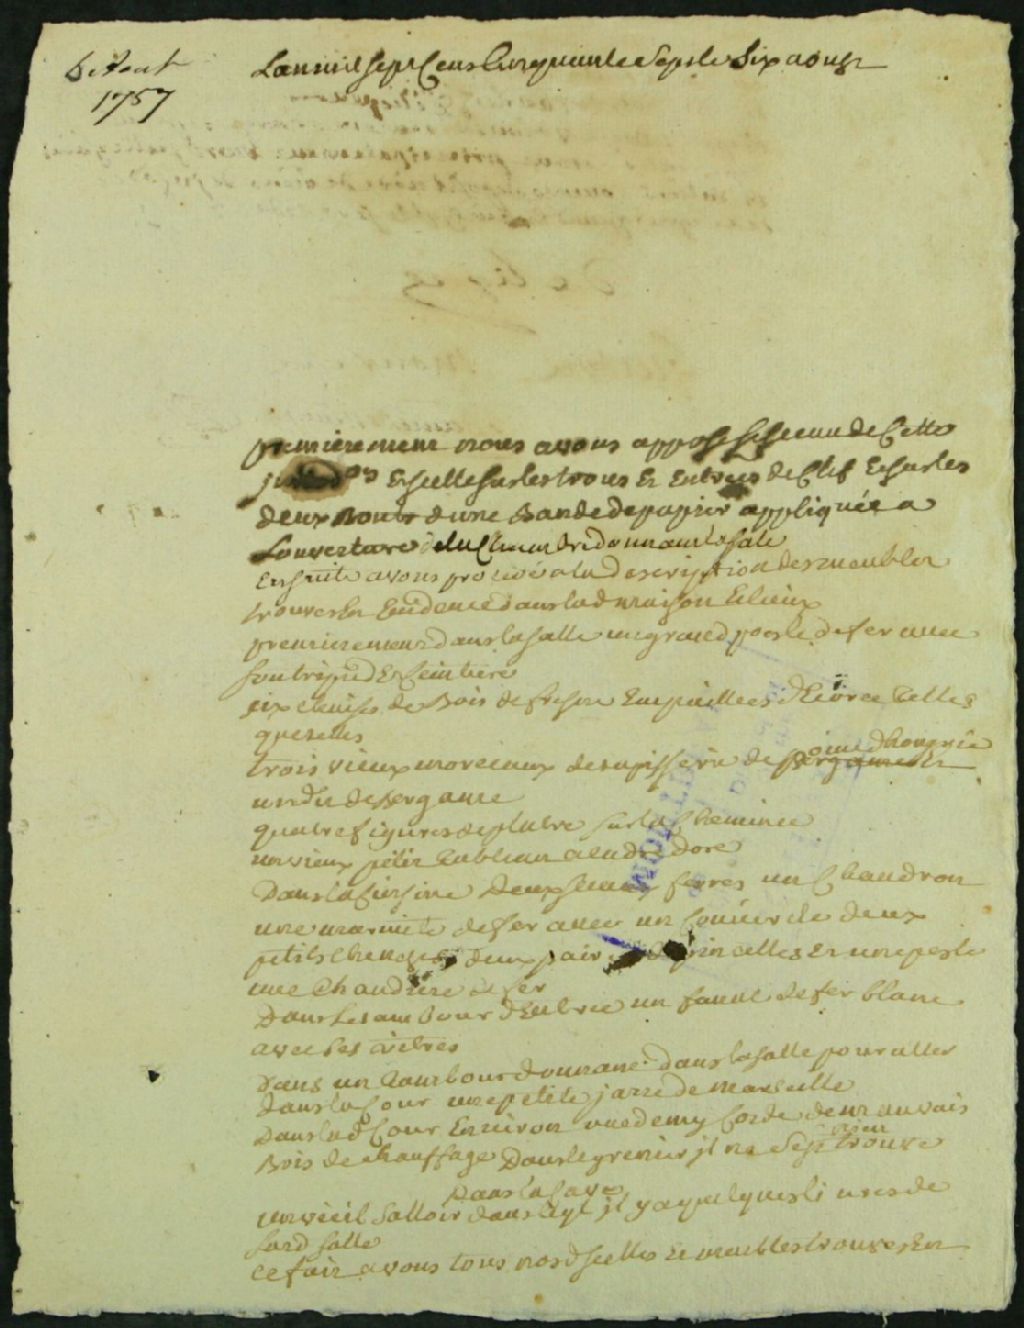 6e Aout
1757
L'an mil sept Cens Cinquante Sept le Six aoust
premierement nous avons apposé le sceau de Cette
Et scellé sur les trous Et Entrées de Clef Et sur les
deux bouts d'une Bande de papier appliquée a
Louverture de la Chambre donnant la sale
Ensuite avons procedé a la description des meubles
trouves En Evidence dans lad maison Et lieux
premierement dans la salle un grand poesle de fer avec
son tripied Et Ceinture
six chaises de Bois de fresne Empaillees telles
quelles
trois vieux morceaux de tapisserie de pointe d'hongrie
de Bergame
quatre figures de platre sur la Cheminée
un vieux petit tableau a Cadre doré
Dans la Cuisine deux sceaux ferres un Chaudron
une marmitte de fer avec un Couvercle deux
petits chenets deux paires pincettes Et une pesle
une Chaudiere de fer
Dans le tambour d'Entrée un fanal de fer blanc
avec ses vitres
Dans un tambour donnant dans la salle pour aller
dans la Cour une petite jarre de marseille
Dans lad Cour Environ une demy Corde de mauvais
Bois de chauffage Dans le grenier jl ne s'est rien trouvé
Dans la Cave
un vieil salloir dans lequel jl y a quelques livres de
lard sallé
ce fait avons tous nosd scellés Et meubles trouves En